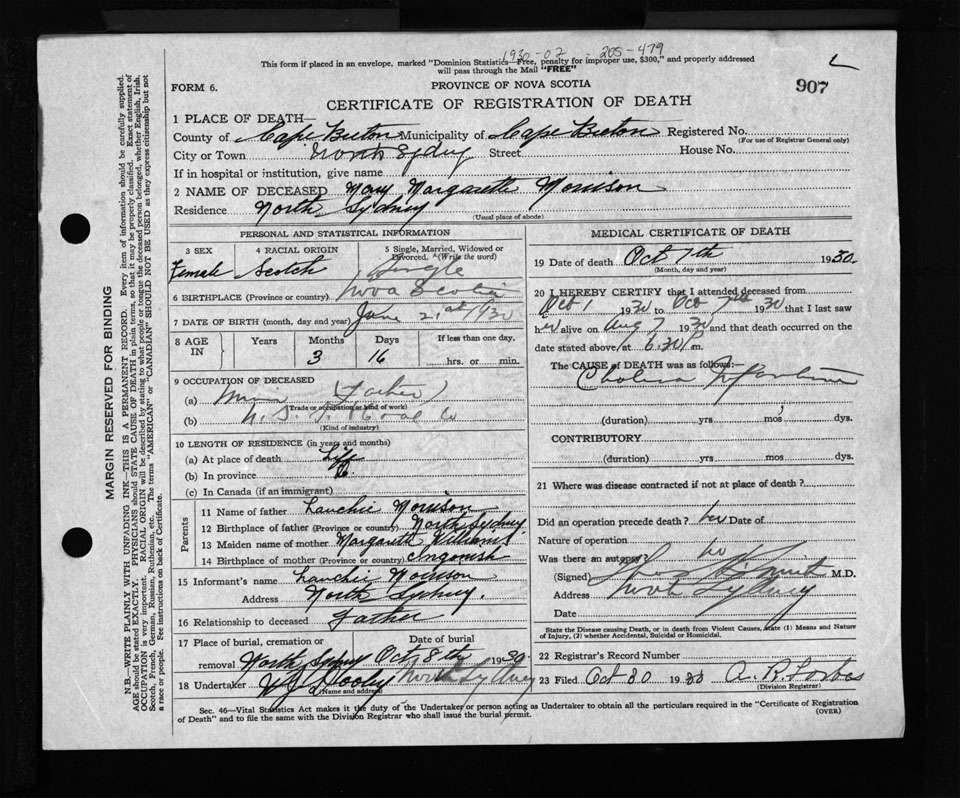 1930-02 - 205-479
This form if placed in an envelope, marked "Dominion Statistics—Free, penalty for improper use, $300," and properly addressed
will pass through the Mail "FREE"
907
FORM 6.
PROVINCE OF NOVA SCOTIA
CERTIFICATE OF REGISTRATION OF DEATH
MARGIN RESERVED FOR BINDING
N.B.—WRITE PLAINLY WITH UNFADING INK—THIS IS A PERMANENT RECORD. Every item of information should be carefully supplied.
AGE should be stated EXACTLY. PHYSICIANS should STATE CAUSE OF DEATH in plain terms, so that it may be properly classified. Exact statement of
OCCUPATION is very important. RACIAL ORIGIN will be described by stating to what people or tongue the deceased person belonged, whether English, Irish,
Scotch, French, German, Russian, Ruthenian, etc. The terms "AMERICAN" or "CANADIAN" SHOULD NOT BE USED as they express citizenship but not
a race or people. See instructions on back of Certificate.
1 PLACE OF DEATH—
County of Cape Breton Municipality of Cape Breton Registered No.
(For use of Registrar General only)
City or Town North Sydney Street House No.
If in hospital or institution, give name
2 NAME OF DECEASED Mary Margarette Morrison
Residence North Sydney
(Usual place of abode)
PERSONAL AND STATISTICAL INFORMATION
3 SEX 4 RACIAL ORIGIN 5 Single, Married, Widowed or
Divorced. (Write the word)
Female Scotch Single
6 BIRTHPLACE (Province or country) Nova Scotia
7 DATE OF BIRTH (month, day and year) June 21st/1930
8 AGE IN Years Months Days If less than one day,
3 16 hrs. or min.
9 OCCUPATION OF DECEASED
(a) (Father)
Trade or occupation or kind of work)
(b)
(Kind of industry)
10 LENGTH OF RESIDENCE (in years and months)
(a) At place of death Life
(b) In province
(c) In Canada (if an immigrant)
Parents
11 Name of father Lauchie Morrison
12 Birthplace of father (Province or country) North Sydney
13 Maiden name of mother Margareth Williams
14 Birthplace of mother (Province or country) Ingonish
15 Informant's name Lauchie Morrison
Address North Sydney.
16 Relationship to deceased Father
17 Place of burial, cremation or Date of burial
removal North Sydney Oct 8th 1930
18 Undertaker North Sydney
(Name and address)
MEDICAL CERTIFICATE OF DEATH
19 Date of death Oct 7th 1930
(Month, day and year)
20 I HEREBY CERTIFY that I attended deceased from
Oct 1 1930 to Oct 7th 1930 that I last saw
her alive on Aug 7 1930 and that death occurred on
date stated above at 6.30 P.m.
The CAUSE OF DEATH was as follows:—
Cholera Infantum
(duration) yrs mos dys.
CONTRIBUTORY
(duration) yrs mos dys.
21 Where was disease contracted if not at place of death?
Did an operation precede death? no Date of
Nature of operation
Was there an autopsy? no
(Signed) M.D.
Address North Sydney
Date
State the Disease causing Death, or in death from Violent Causes, state (1) Means and Nature
of Injury, (2) whether Accidental, Suicidal or Homicidal.
22 Registrar's Record Number
23 Filed Oct 80 1930 A. R. Forbes
(Division Registrar)
Sec. 46—Vital Statistics Act makes it the duty of the Undertaker or person acting as Undertaker to obtain all the particulars required in the "Certificate of Registration
of Death" and to file the same with the Division Registrar who shall issue the burial permit.
(OVER)